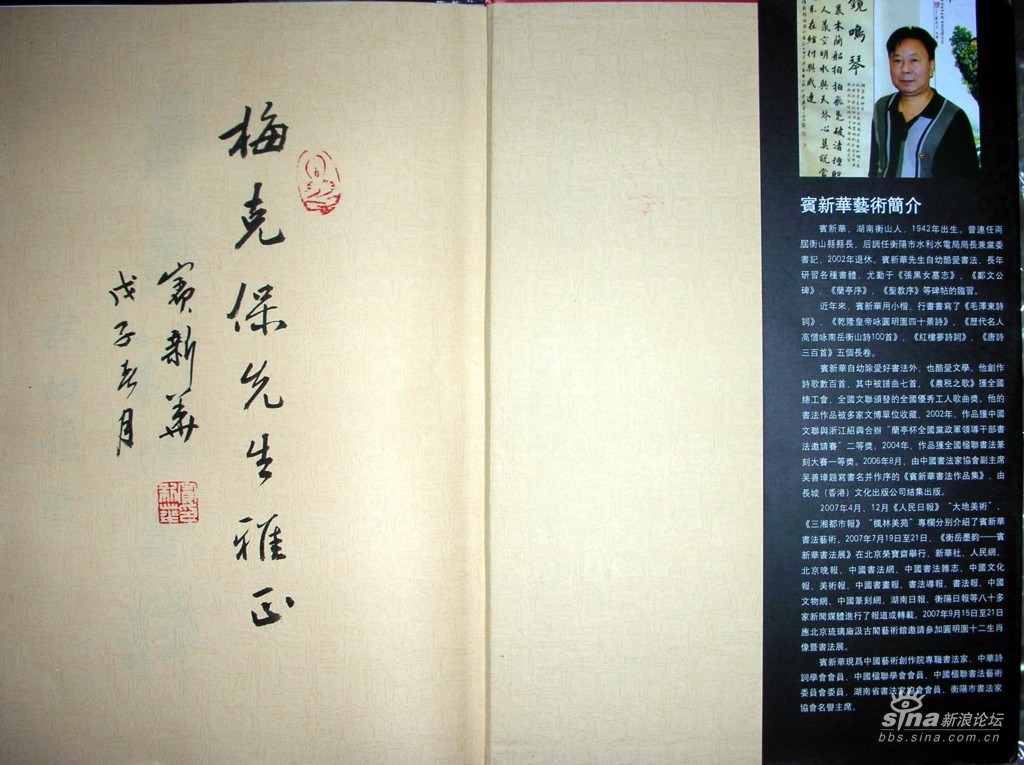 梅克保先生雅正
賓新華
戊子春月
鏡鳴琴
賓新華藝術簡介
賓新華，湖南衡山人，1942年出生。曾連任兩
屆衡山縣縣長，后調任衡陽市水利水電局局長兼黨委
書記，2002年退休。賓新華先生自幼酷愛書法、長年
研習各種書體，尤勤于《張黑女墓志》、《鄭文公
碑》、《蘭亭序》、《聖教序》等碑帖的臨習。
近年來，賓新華用小楷、行書書寫了《毛澤東詩
詞》、《乾隆皇帝咏圓明園四十景詩》、《歷代名人
高僧咏南岳衡山詩100首》、《紅樓夢詩詞》、《唐詩
三百首》五個長卷。
賓新華自幼除愛好書法外，也酷愛文學。他創作
詩歌數百首，其中被譜曲七首，《農税之歌》獲全國
總工會、全國文聯頒發的全國優秀工人歌曲獎。他的
書法作品被多家文博單位收藏，2002年，作品獲中國
文聯與浙江紹興合辦“蘭亭杯全國黨政軍領導干部書
法邀請賽”二等獎。2004年，作品獲全國楹聯書法篆
刻大賽一等獎。2006年8月，由中國書法家協會副主席
吴善璋題寫書名并作序的《賓新華書法作品集》，由
長城（香港）文化出版公司結集出版。
2007年4月、12月《人民日報》“大地美術”、
《三湘都市報》“楓林美苑”專欄分别介紹了賓新華
書法藝術。2007年7月19日至21日，《衡岳墨韵——賓
新華書法展》在北京榮寶齋舉行，新華社、人民網、
北京晚報、中國書法網、中國書法雜志、中國文化
報、美術報、中國書畫報、書法導報、書法報、中國
文物網、中國篆刻網、湖南日報、衡陽日報等八十多
家新聞媒體進行了報道或轉載。2007年9月15日至21日
應北京琉璃廠汲古閣藝術館邀請參加圓明園十二生肖
像暨書法展。
賓新華現爲中國藝術創作院專職書法家、中華詩
詞學會會員、中國楹聯學會會員、中國楹聯書法藝術
委員會委員、湖南省書法家協會會員、衡陽市書法家
協會名譽主席。
sina新浪论坛
bbs.sina.com.cn